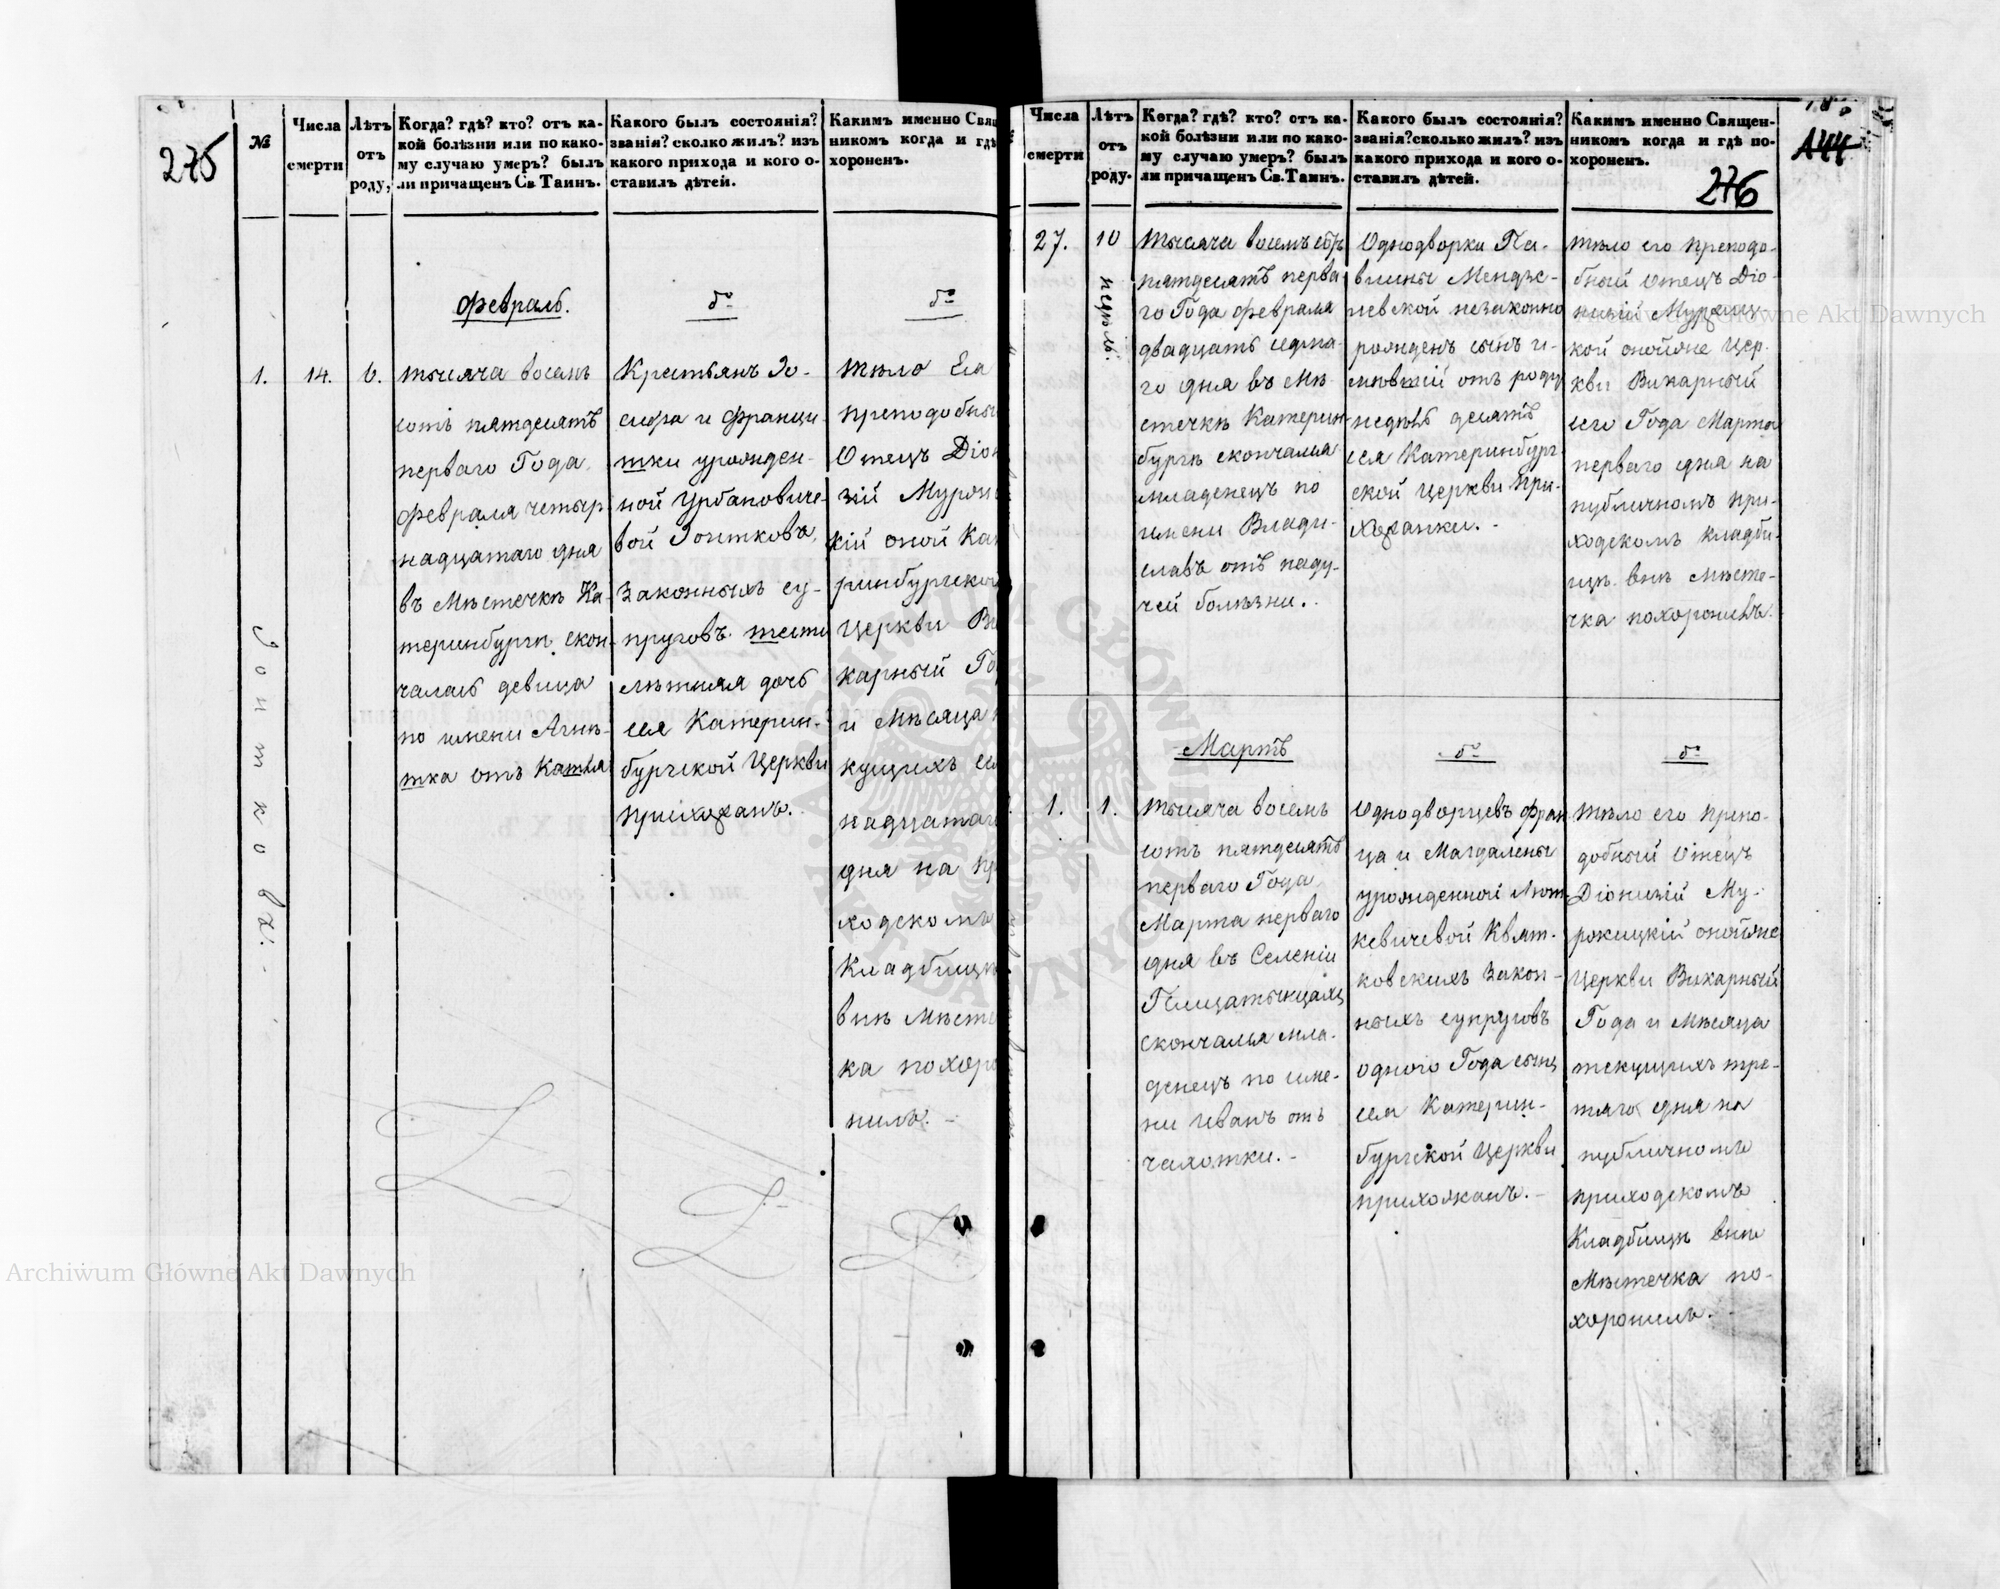 275
№
Числа
смерти
Лѣтъ
отъ
роду,
Когда? гдѣ? кто? отъ ка-
кой болѣзни или по како-
му случаю умеръ? былъ
ли причащенъ Св. Таинъ.
Какого былъ состоянія?
званія? сколко жилъ? изъ
какого прихода и кого о-
ставилъ дѣтей.
Каким именно Свящ
ником когда и гдѣ
хороненъ.
Февраль.
до
до
1.
14.
6.
тысяча восемь
сотъ пятдесятъ
перваго Года
февраля четыр
надцатаго дня
въ Мѣстечкѣ Ка-
теринбургѣ скон-
чалась девица
по имени Агнѣ-
тка отъ Кашля
Крестьянъ Іо-
сифа и Франци-
тки урожден-
ной Урбановиче-
вой Зонтковъ,
Законныхъ су-
пруговъ шести
лѣтняя дочь
сея Катерин-
бургской Церкви
прихожанъ.
тѣло Ея
преподобный
Отецъ Діон
зій Мурож
кій оной Кат
ринбургской
Церкви Ви
карный Го
и Мѣсяца
кущихъ ше
надцатаго
дня на пр
ходскомъ
Кладбищѣ
внѣ Мѣсте
ка похоро
нилъ.-
Зонткова.-
Числа
смерти
Лѣтъ
отъ
роду.
Когда? гдѣ? кто? отъ ка-
кой болѣзни или по како-
му случаю умеръ? былъ
ли причащенъ Св. Таинъ.
Какого былъ состоянія?
званія? сколько жилъ? изъ
какого прихода и кого о-
ставилъ дѣтей.
Каким именно Священ-
ником когда и гдѣ по-
хороненъ.
276
144
27.
10
недѣль.
тысяча восемьсотъ
пятдесятъ перва
го Года февраля
двадцать седма-
го дня въ Мѣ-
стечкѣ Катерин-
бургѣ скончался
младенецъ по
имени Влади-
славъ отъ паду-
чей болѣзни..
Однодворки Па-
влины Мендже-
левской незаконно
рожденъ сынъ и-
мѣвшій отъ роду
недѣль десять
сея Катеринбург-
ской Церкви При-
хожанки.-
тѣло его преподо-
бный Отецъ Діо-
низій Мурожиц-
кой онойже Цер-
кви Викарный
сего Года Марта
перваго дня на
публичномъ при-
ходскомъ кладби-
щѣ внѣ Мѣсте-
чка похоронилъ.
Мартъ
до
до
1.
1.
тысяча восемь
сотъ пятдесятъ
перваго Года
Марта перваго
дня въ Селеніи
скончался мла-
денецъ по име-
ни Иванъ отъ
чахотки.-
Однодворцевъ Фран
ца и Магдалены
урожденной Лют
кевичевой Квят-
ковскихъ Закон-
ныхъ супруговъ
одного Года сынъ
сея Катерин-
бургской Церкви
прихожанъ.-
тѣло его Препо-
добный Отецъ
Діонизій Му-
рожицкій онойже
Церкви Викарный
Года и Мѣсяца
текущихъ тре-
тяго дня на
публичномъ
приходскомъ
Кладбищѣ внѣ
Мѣстечка по-
хоронилъ.-
Archiwum Główne Akt Dawnych
Archiwum Główne Akt Dawnych